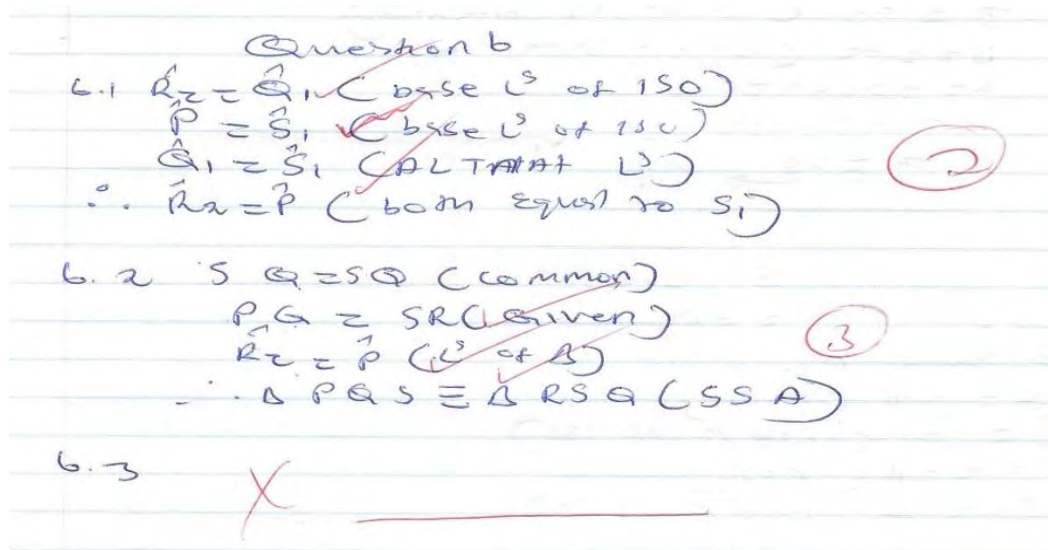 Question 6
6.1 R̂₂ = Q̂₁ (base L^s of ISO)
P̂ = Ŝ₁ (base L^s of ISO)
Q̂₁ = Ŝ₁ (ALTRNAT L^s)
2
∴ R̂₂ = P̂ (both equal to S₁)
6.2 SQ = SQ (common)
PQ = SR (Given)
3
R̂₂ = P̂ (L^s of Δ)
∴ Δ PQS ≡ Δ RSQ (SSA)
6.3